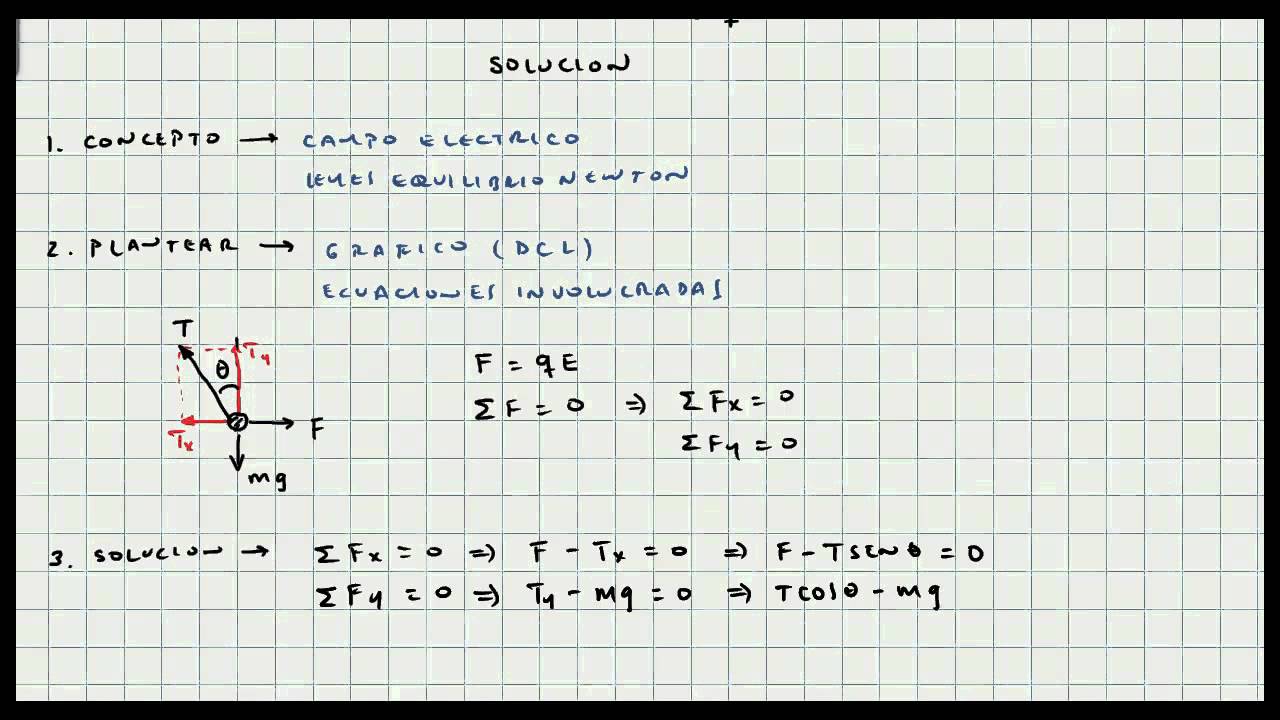 SOLUCION
1. CONCEPTO → CAMPO ELECTRICO
LEYES EQUILIBRIO NEWTON
2. PLANTEAR → GRAFICO (DCL)
ECUACIONES INVOLUCRADAS
T
Ty
θ
F = qE
ΣF = 0 ⇒ ΣFx = 0
Tx
F
ΣFy = 0
mg
3. SOLUCION → ΣFx = 0 ⇒ F - Tx = 0 ⇒ F - TSENθ = 0
ΣFy = 0 ⇒ Ty - mg = 0 ⇒ TCOSθ - mg